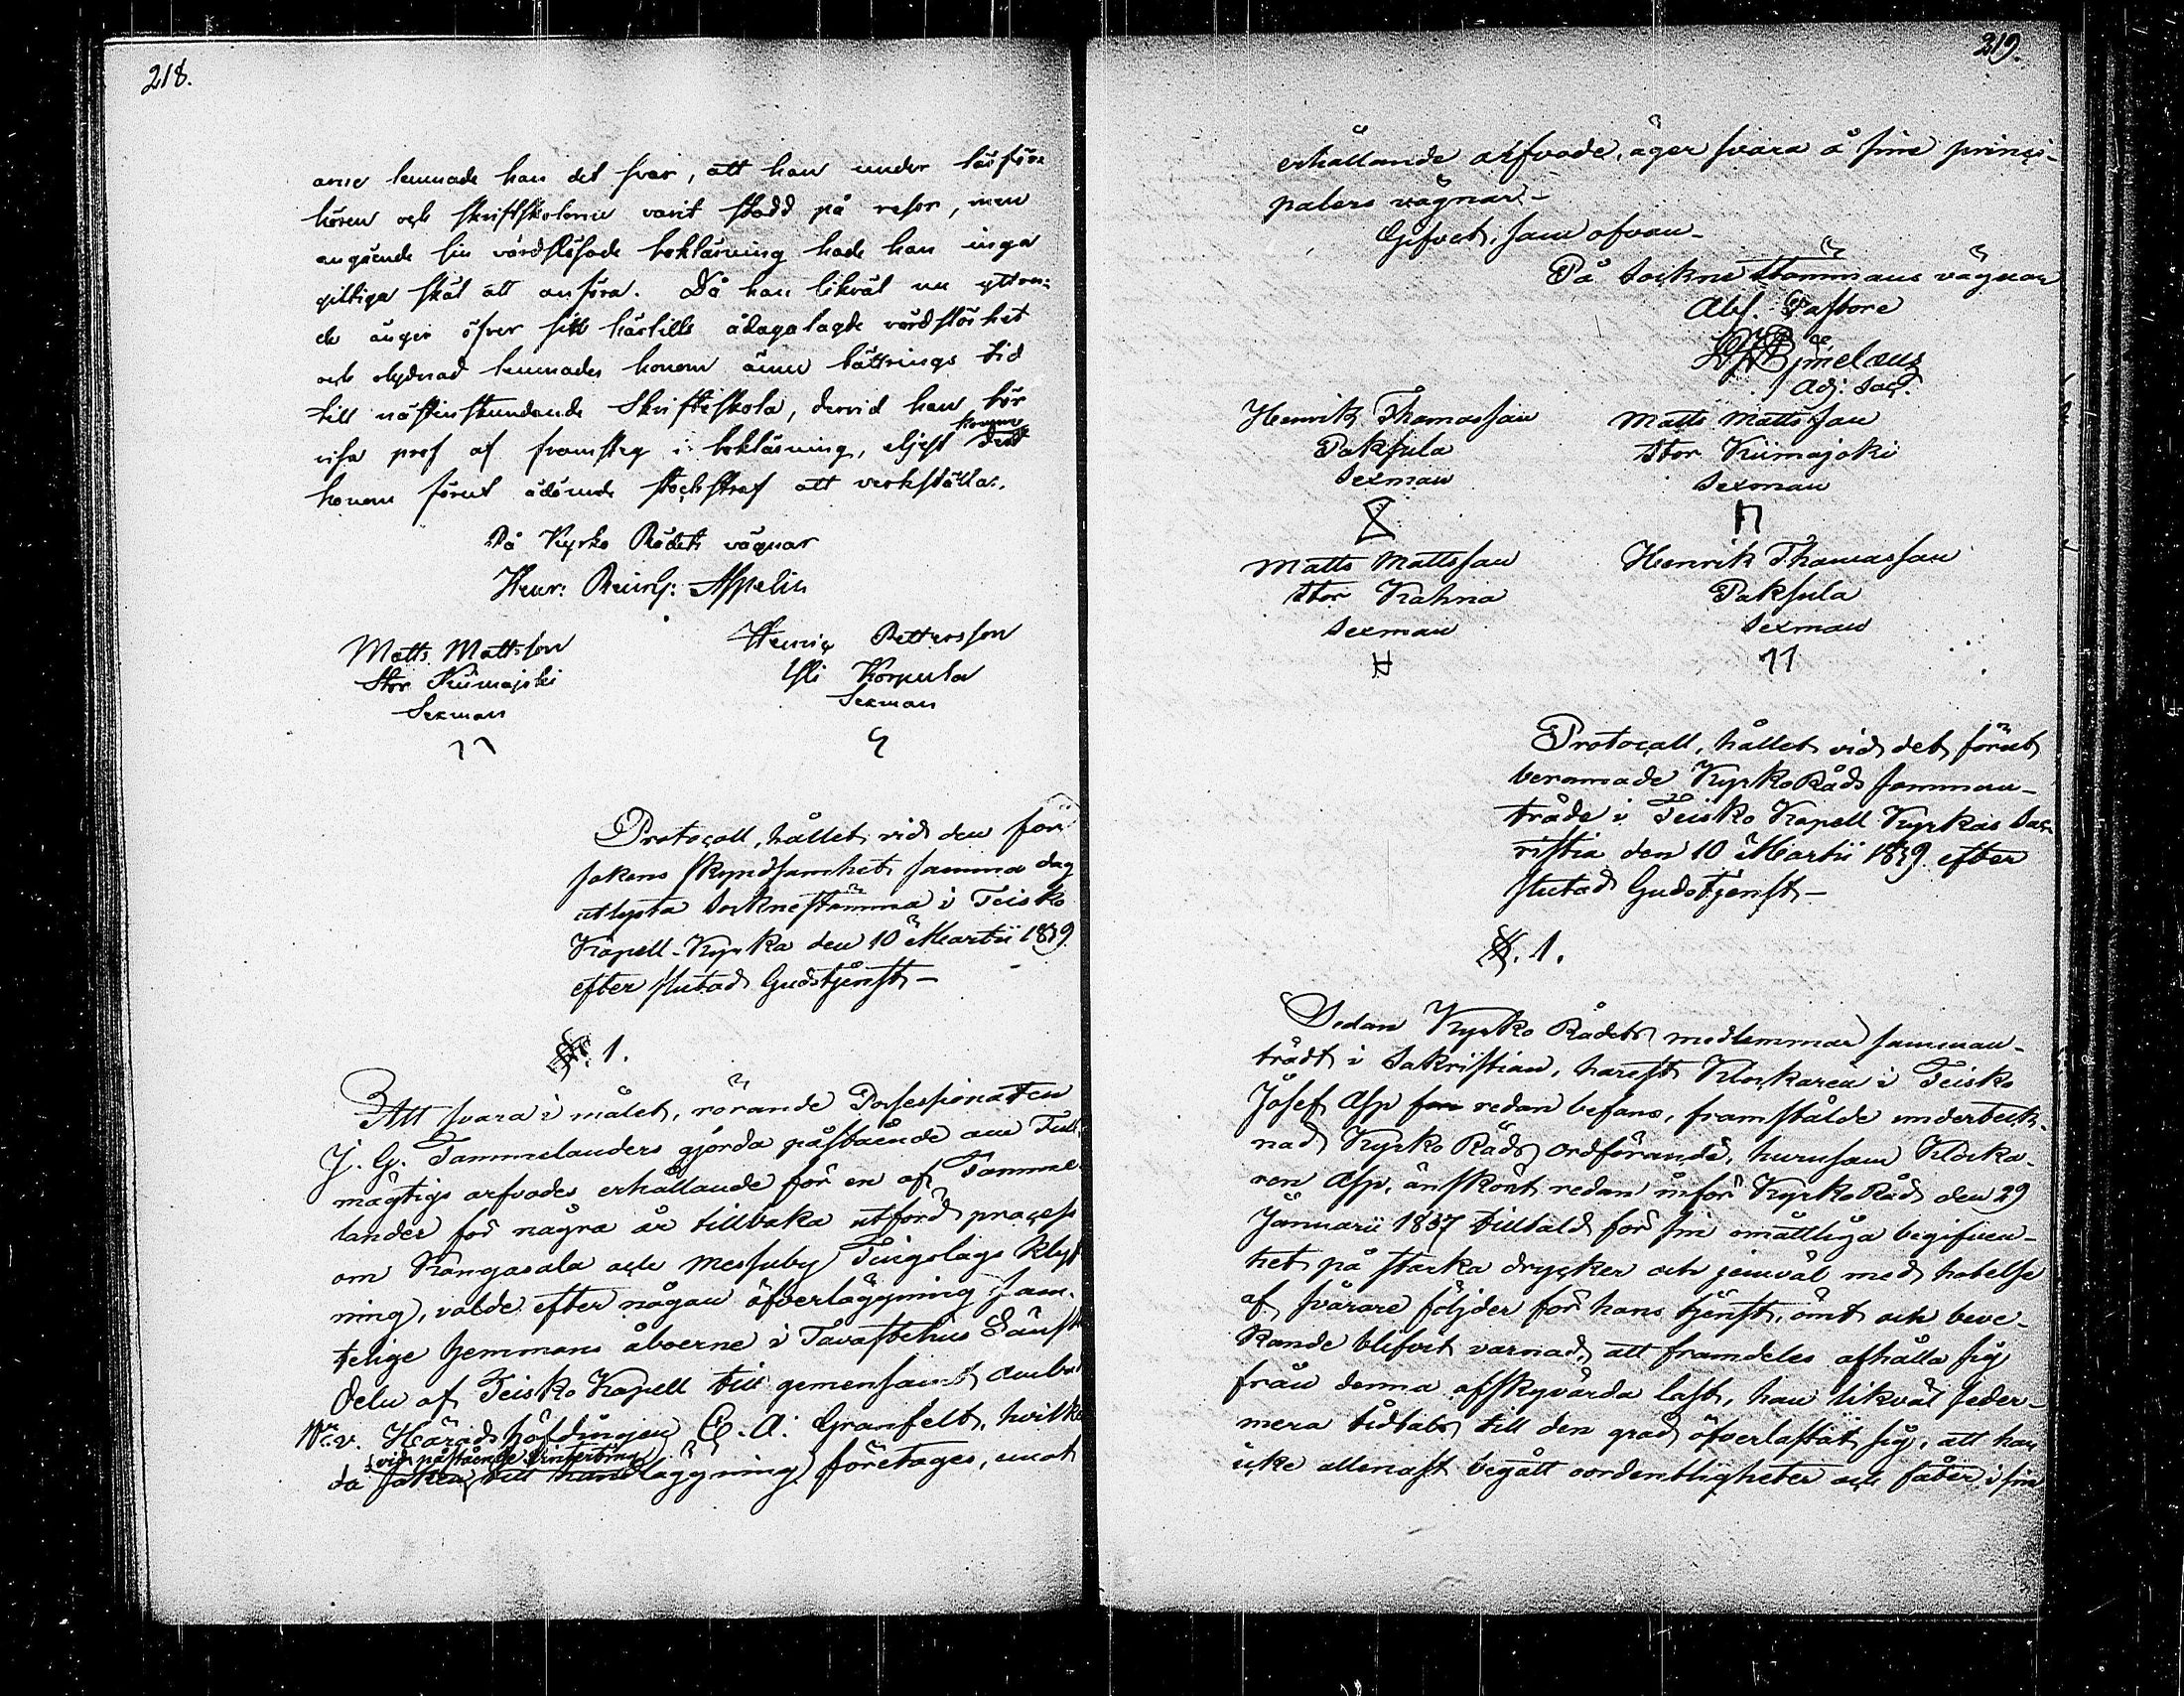 218.
arne lemnade han det svar, att han under läsför-
hören och skriftskolorne varit stadd på resor, men
angående sin vårdslösade bokläsning hade han inga
giltiga skäl att anföra. Då han likväl nu yttra-
de ånger öfver sitt härtills ådagalagde vårdslöshet
och olydnad lemnades honom ännu bättrings tid
till nästinstundande Skriftskola, dervid han bör
visa prof af framsteg i bokläsning, eljest
kommer
honom förut ådömde stockstraf att verkställas.
På Kyrko Rådets vägnar
Henr: Reinh: Appelin
Matts Mattsson
Stor Kiimajoki
Sexman
Henric Pettersson
Yli Korpula
Sexman
Protocoll, hållet vid den för
sakens skyndsamhet samma dag
utlysta Sockne stämma i Teisko
Kapell-Kyrka den 10 Martii 1839
efter slutad Gudstjenst –
§. 1.
Att svara i målet, rörande Possessionaten
J. G. Tammelanders gjorda påstående om Full-
mägtigs arfvodes erhållande för en af Tamme-
lander för några år tillbaka utförd process
om Kangasala och Messuby Tingslags klyf
ning, valde efter någon öfverläggning sam-
telige hemmans åboerne i Tavastehus Läns
delen af Teisko Kapell till gemensamt ombud
V. Häradshöfdingen C. A. Granfelt, hvilken
vid påstående Vinterting
då saken till handläggning företages, emot
219.
erhållande arfvode, äger svara å sine princi-
palers vägnar –
Gifvet, som ofvan –
På Sockne stämmans vägnar
Abs. Pastore
Adj. Sac.
Henrik Thomasson
Paksula
Sexman
Matts Mattsson
Stor Kiimajoki
Sexman
Matts Mattsson
Stor Kahna
Sexman
Henrik Thomasson
Paksula
Sexman
Protocoll, hållet vid det förut
beramade KyrkoRåds samman-
träde i Teisko Kapell Kyrkas Sac-
ristia den 10 Martii 1839 efter
slutad Gudstjenst –
§. 1.
Sedan Kyrko Rådets medlemmar samman-
trädt i Sakristian, harest Klockaren i Teisko
Josef Asp redan befans, framstälde underteck-
nad Kyrko Råds ordförande, hurusom Klocka-
ren Asp, änskönt redan inför KyrkoRåd den 29
Januarii 1837 tilltald för sin omåttliga begifven-
het på starka drycker och jemväl med hotelse
af svårare följder för hans tjenst, ömt och beve-
kande blifvit varnad, att framdeles afhålla sig
från denna afskyvärda last, han likväl seder-
mera tidtals till den grad öfverlastat sig, att han
icke allenast begått oordentligheter och fäter i sin